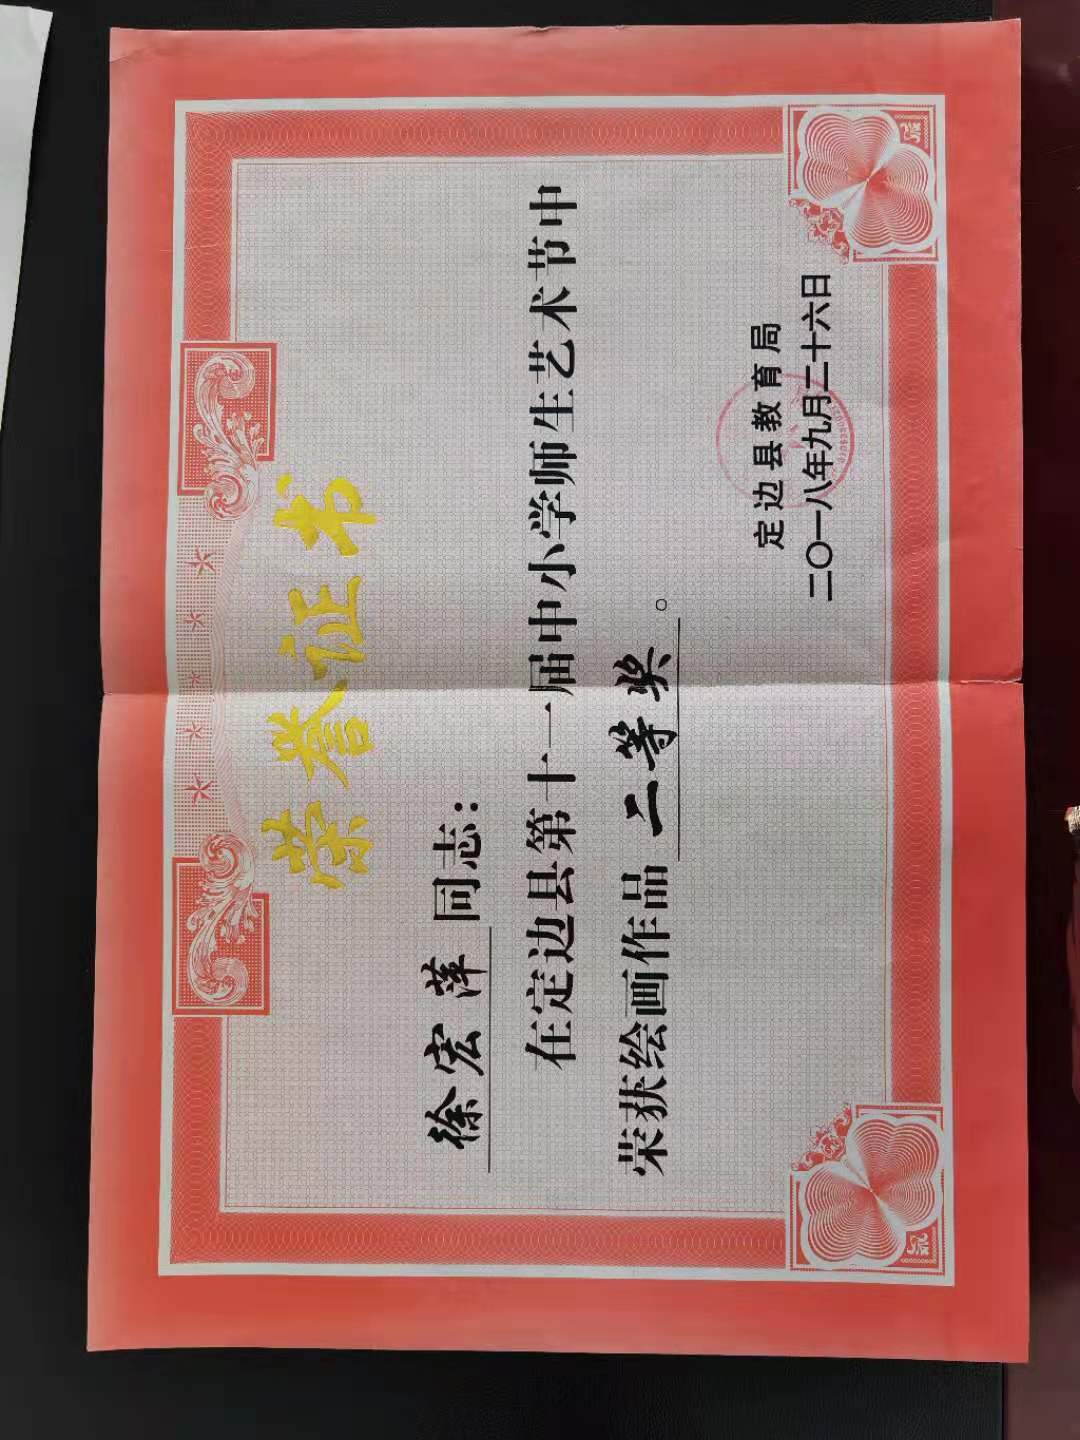 荣誉证书
徐宏萍同志：
在定边县第十一届中小学师生艺术节中
荣获绘画作品二等奖。
定边县教育局
二〇一八年九月二十六日